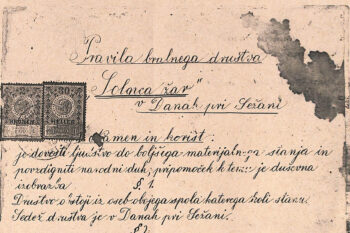 Pravila bralnega društva
„Solnca žar"
v Danah pri Sežani
Namen in korist:
je dovesti ljudstvo do boljšega materijalnega stanja in
povzdigniti narodni duh, pripomoček k temu je duševna
izobrazba
§. 1.
Društvo obstoji iz oseb obojega spola katerega koli stanu.
Sedež društva je v Danah pri Sežani.
§ 2.